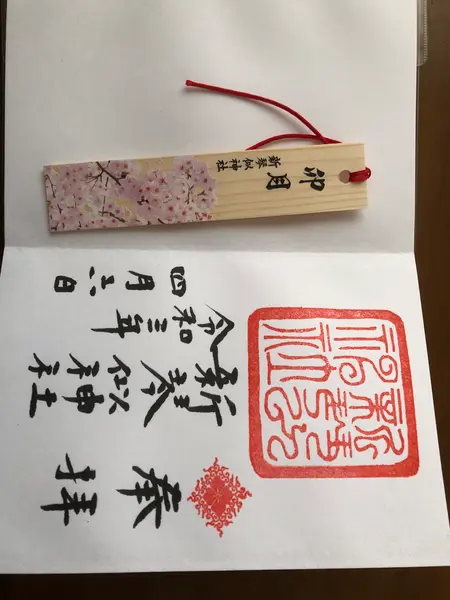 卯月
新琴似神社
奉拝
新琴似神社
令和三年
四月六日